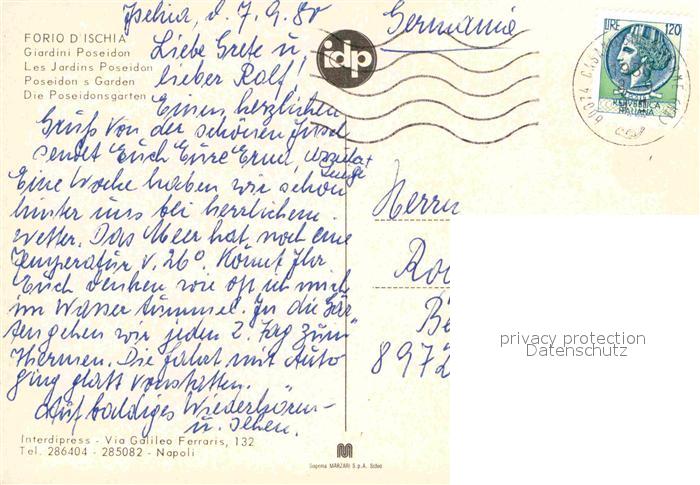 Ischia, d. 7.9.80
Germania
FORIO D'ISCHIA
Giardini Poseidon
Les Jardins Poseidon
Poseidon s Garden
Die Poseidonsgärten
idp
LIRE 120
REPVBBLICA
ITALIANA
Liebe Grete u.
lieber Rolf!
Einen herzlichen
Gruß von der schönen Insel
sendet Euch Eure Erni,
Eine Woche haben wir schon
hinter uns bei herrlichem
Wetter. Das Meer hat noch eine
Temperatur v. 26°. Könnt Ihr
Euch denken wie oft ich mich
im Wasser tummel. In die Gär-
ten gehen wir jeden 2. Tag zum
Thermen. Die Fahrt mit Auto
ging glatt vonstatten.
Auf baldiges Wiederhören-
u. sehen.
Herrn
Ro
8972
privacy protection
Datenschutz
Interdipress - Via Galileo Ferraris, 132
Tel. 286404 - 285082 - Napoli
MARZARI S.p.A. Schio